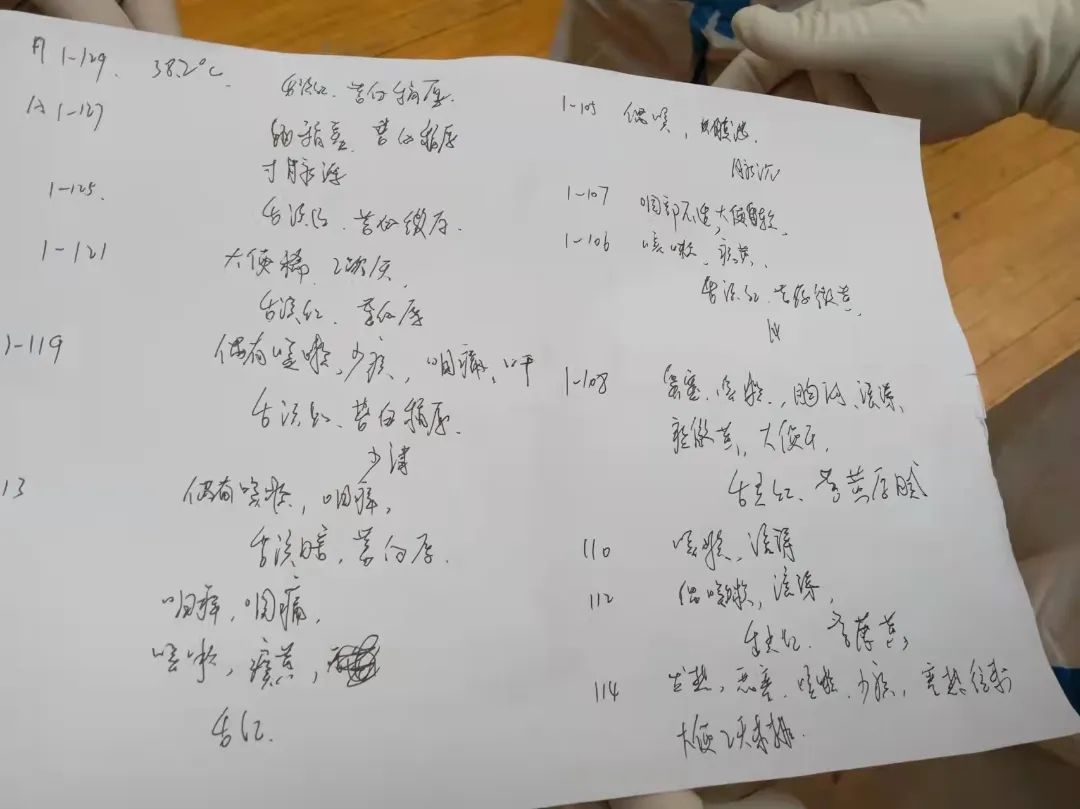 A 1-129. 38.2℃. 舌淡红. 苔白稍厚.
1A 1-127
苔白稍厚
寸脉浮
1-125.
舌淡红. 苔白微厚.
1-121 大便稀, 2次/天,
舌淡红. 苔白厚
1-119 偶有咳嗽, 少痰, 咽痛、咽干
舌淡红. 苔白稍厚.
少津
13 偶有咳嗽, 咽痒,
舌淡暗, 苔白厚.
咽痒, 咽痛,
咳嗽, 痰黄,
舌红.
1-105 偶咳,
脉沉
1-107 咽部不适, 大便
1-106 咳嗽、痰黄,
舌淡红. 微黄,
1-108 鼻塞. 咳嗽., 胸闷、
微黄, 大便干,
舌尖红、苔黄厚腻
110 咳嗽,
112 偶咳嗽,
舌尖红. 苔薄黄,
114 发热, 恶寒. 咳嗽. 少痰, 寒热往来
大便2天未排.